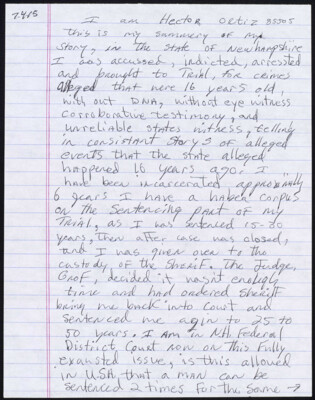 7.4.15
I am Hector Ortiz 85505
this is my summery of my
story, in the state of Newhampshire
I was accussed, indicted, arressted
and brought to Trial, for crimes
alleged that were 16 years old,
with out DNA, without eye witness
corroborative testimony, and
unreliable states witness, telling
inconsistant storys of alleged
events that the state alleged
happened 16 years ago. I
have been incarcerated approximatly
6 years I have a habeas corpus
on the sentencing part of my
Trial, as I was sentenced 15-30
years, then after case was closed,
and I was given over to the
custody of the Sherif. The judge,
Grof, decided it wasnt enough
time and had ordered Sheriff
bring me back into court and
sentenced me again to 25 to
50 years. I am in NH Federal
District Court now on this fully
exausted issue, is this allowed
in USA that a man can be
sentenced 2 times for the same →